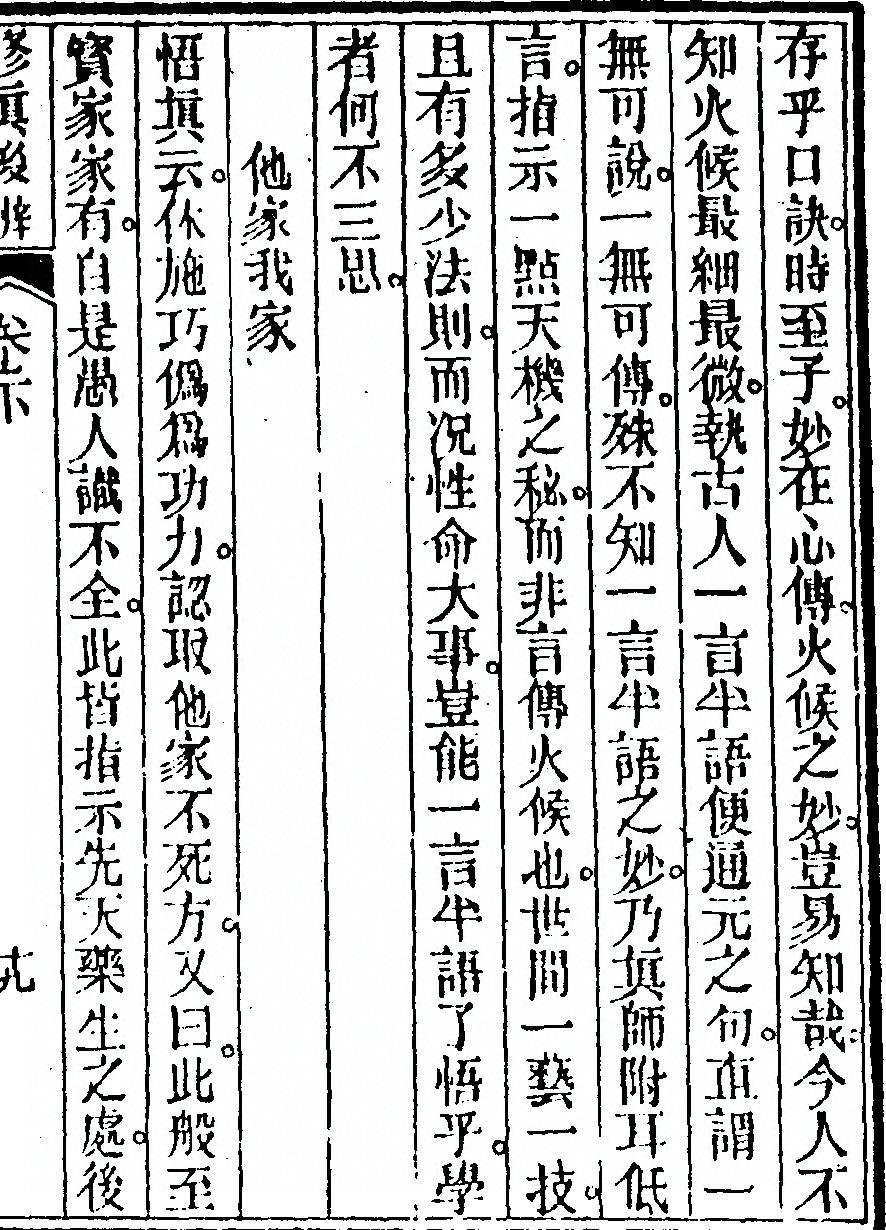 存乎口訣。時至子。妙在心傳。火候之妙。豈易知哉。今人不
知火候最細最微。執古人一言半語便通元之句。直謂一
無可說。一無可傳。殊不知一言半語之妙。乃眞師附耳低
言。指示一點天機之秘。而非言傳火候也。世間一藝一技。
且有多少法則。而况性命大事。豈能一言半語了悟乎。學
者何不三思。
他家我家
悟眞云。休施巧僞爲功力。認取他家不死方。又曰。此般至
寳家家有。自是愚人識不全。此皆指示先天藥生之處。後
修眞後辨